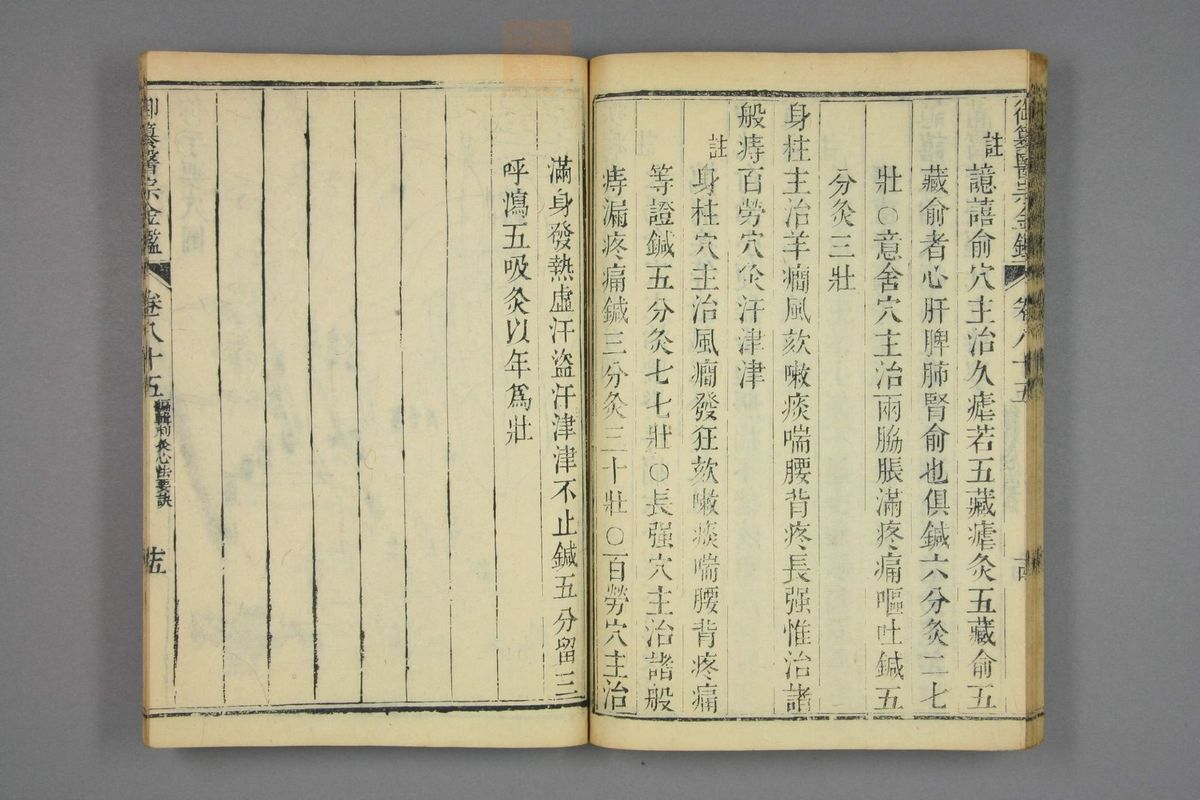 御纂醫宗金鑑 卷八十五
註 譩譆俞穴主治久瘧若五藏瘧灸五藏俞五
藏俞者心肝脾肺腎俞也俱鍼六分灸二七
壯○意舍穴主治兩脇脹滿疼痛嘔吐鍼五
分灸三壯
身柱主治羊癎風欬嗽痰喘腰背疼長强惟治諸
般痔百勞穴灸汗津津
註 身柱穴主治風癎發狂欬嗽痰喘腰背疼痛
等證鍼五分灸七七壯○長强穴主治諸般
痔漏疼痛鍼三分灸三十壯○百勞穴主治
滿身發熱虛汗盜汗津津不止鍼五分留三
呼瀉五吸灸以年爲壯
御纂醫宗金鑑 卷八十五 編輯刺灸心法要訣